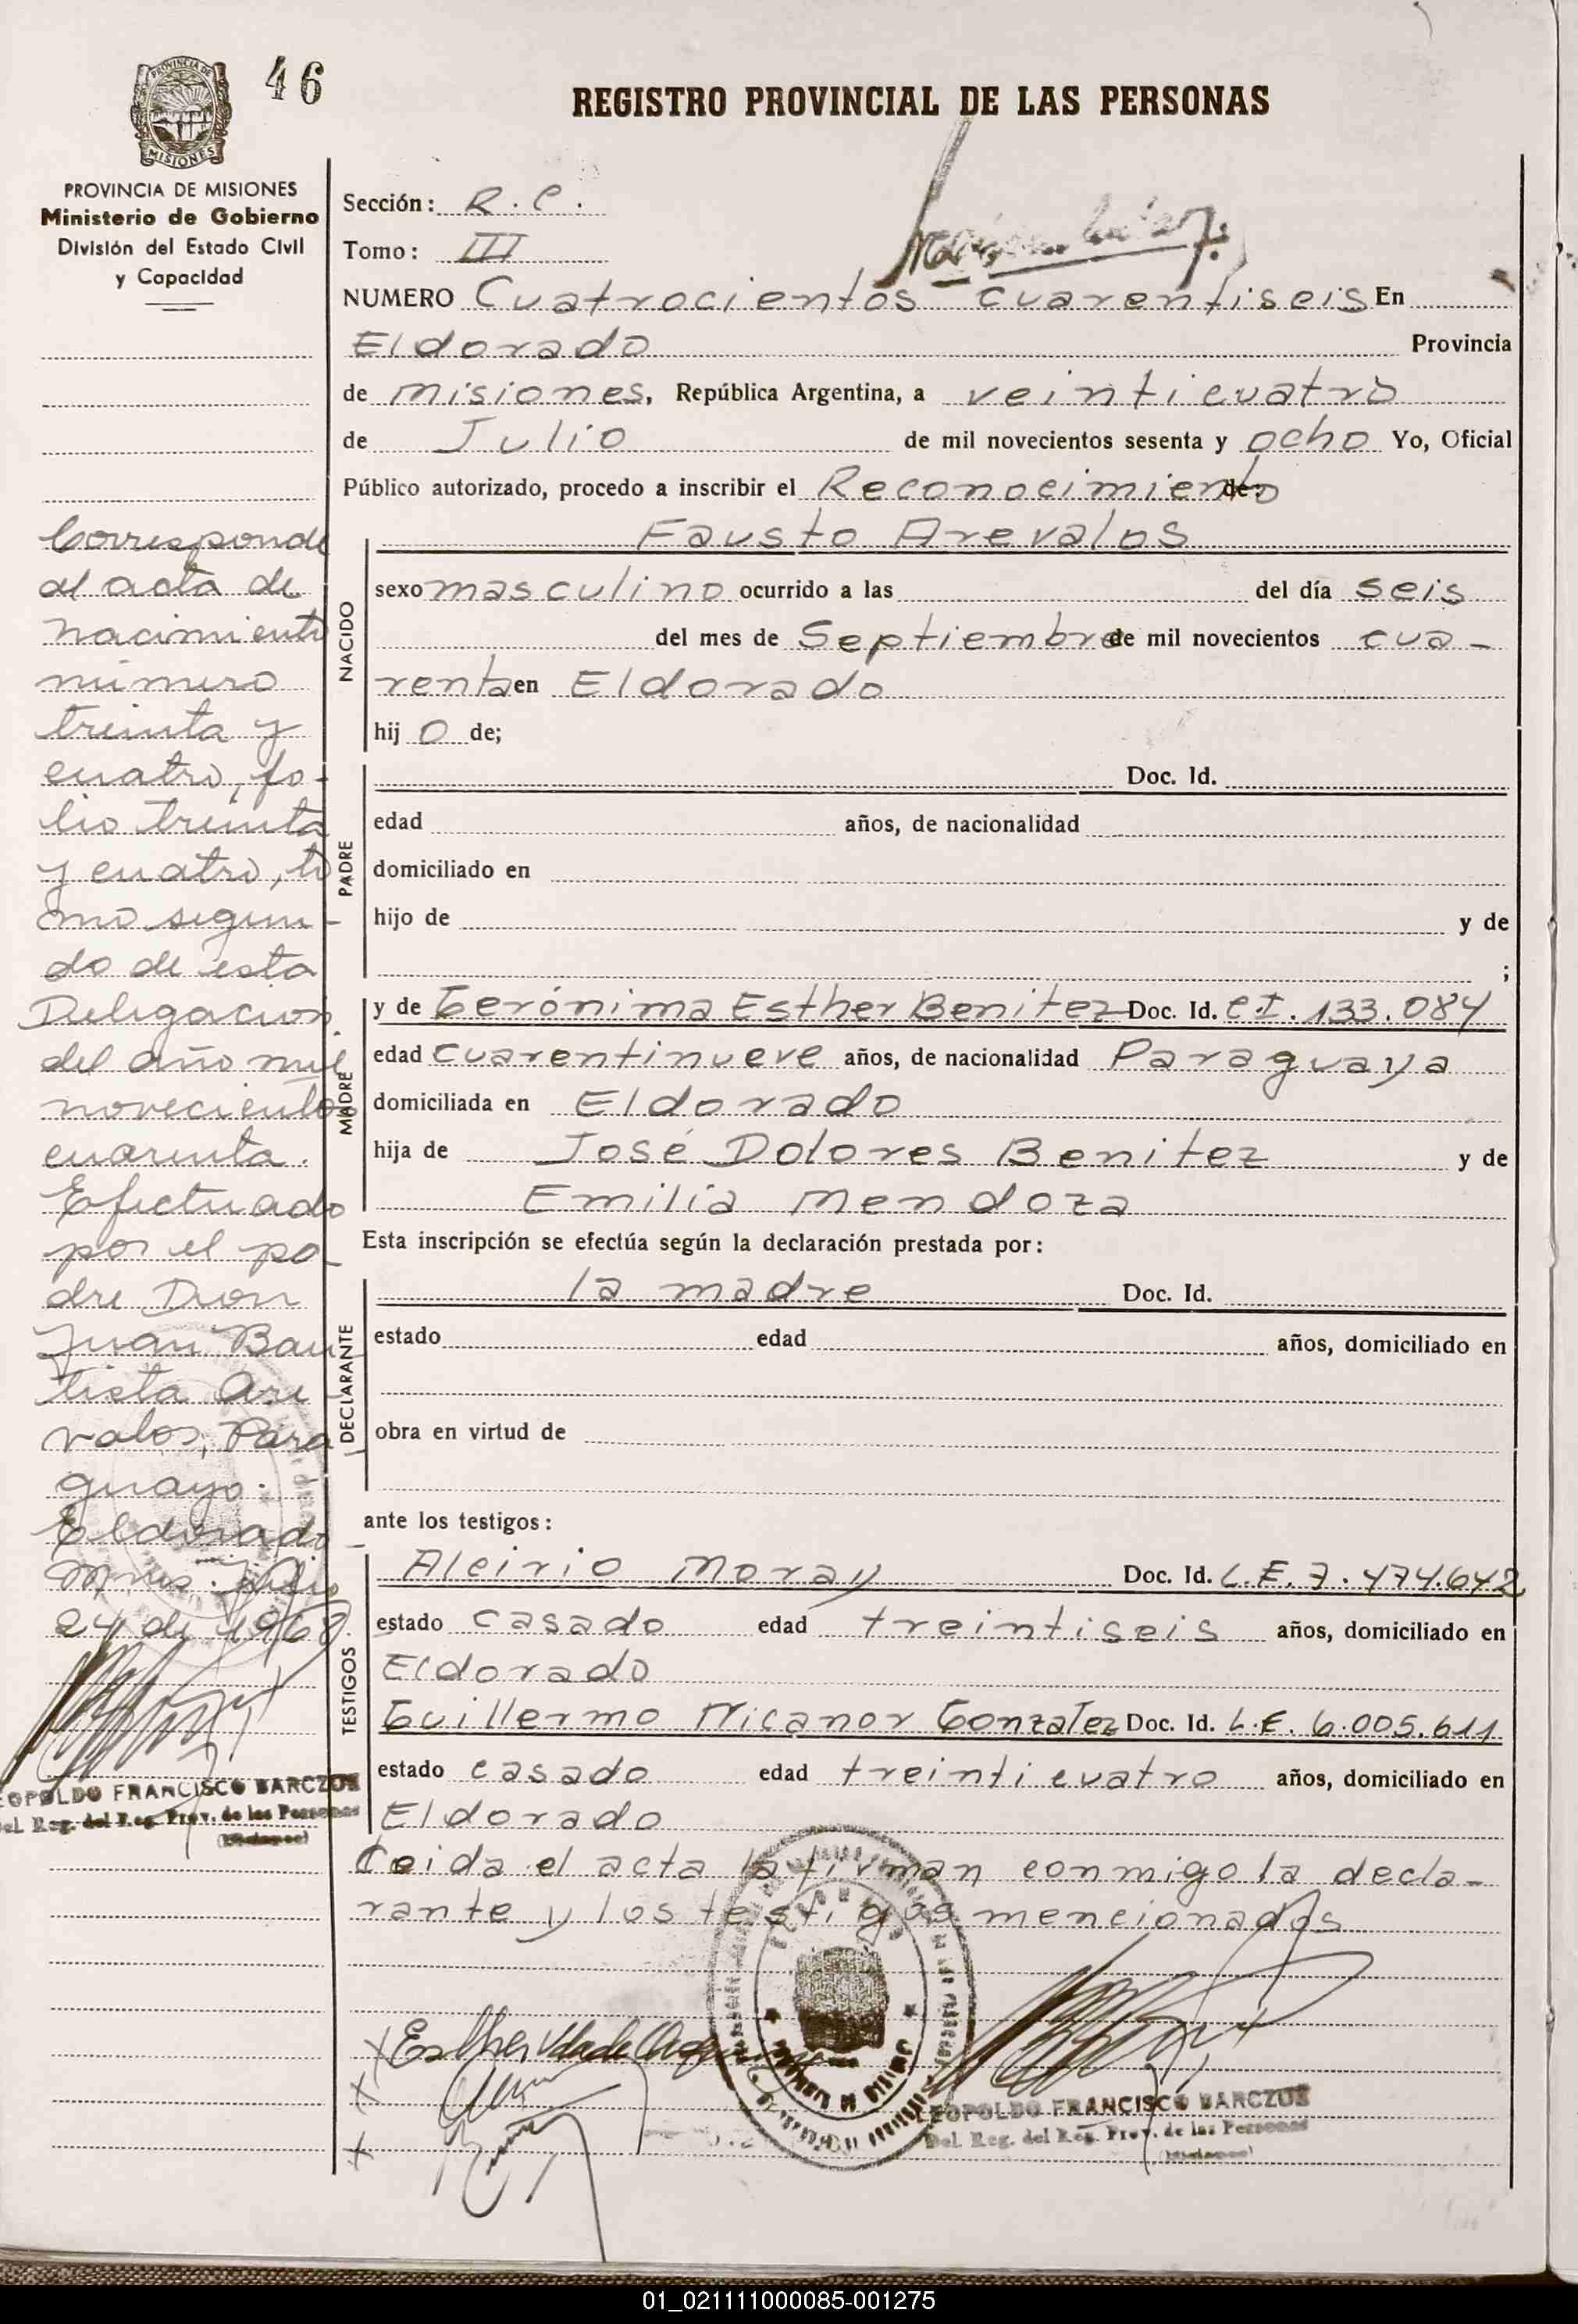 46
REGISTRO PROVINCIAL DE LAS PERSONAS
PROVINCIA DE
MISIONES
PROVINCIA DE MISIONES
Ministerio de Gobierno
División del Estado Civil
y Capacidad
Sección: R. C.
Tomo: III
NUMERO Cuatrocientos cuarentiseis En
Eldorado Provincia
de Misiones, República Argentina, a veinticuatro
de Julio de mil novecientos sesenta y ocho Yo, Oficial
Público autorizado, procedo a inscribir el Reconocimiento de:
Fausto Arevalos
NACIDO
sexo masculino ocurrido a las del día seis
del mes de Septiembre de mil novecientos cua-
renta en Eldorado
hij o de;
PADRE
Doc. Id.
edad años, de nacionalidad
domiciliado en
hijo de y de
;
MADRE
y de Gerónima Esther Benitez Doc. Id. C.I. 133.084
edad cuarentinueve años, de nacionalidad Paraguaya
domiciliada en Eldorado
hija de José Dolores Benitez y de
Emilia Mendoza
Esta inscripción se efectúa según la declaración prestada por:
DECLARANTE
la madre Doc. Id.
estado edad años, domiciliado en
obra en virtud de
ante los testigos:
TESTIGOS
Alcirio Moray Doc. Id. L.E. 7.474.642
estado casado edad treintiseis años, domiciliado en
Eldorado
Guillermo Nicanor Gonzalez Doc. Id. L.E. 6.005.611
estado casado edad treinticuatro años, domiciliado en
Eldorado
Leida el acta la firman conmigo la decla-
rante y los testigos mencionados
Corresponde
al acta de
nacimiento
número
treinta y
cuatro, fo-
lio treinta
y cuatro, to
mo segun-
do de esta
Delegacion
del año mil
novecientos
cuarenta.
Efectuado
por el pa-
dre Don
Juan Bau-
tista Are
valos, Para
guayo.
Eldorado
Mnes. Julio
24 de 1968
LEOPOLDO FRANCISCO BARCZUS
Del. Reg. del Reg. Prov. de las Personas
(Misiones)
Esther Vda de
LEOPOLDO FRANCISCO BARCZUS
Del. Reg. del Reg. Prov. de las Personas
(Misiones)
01_021111000085-001275